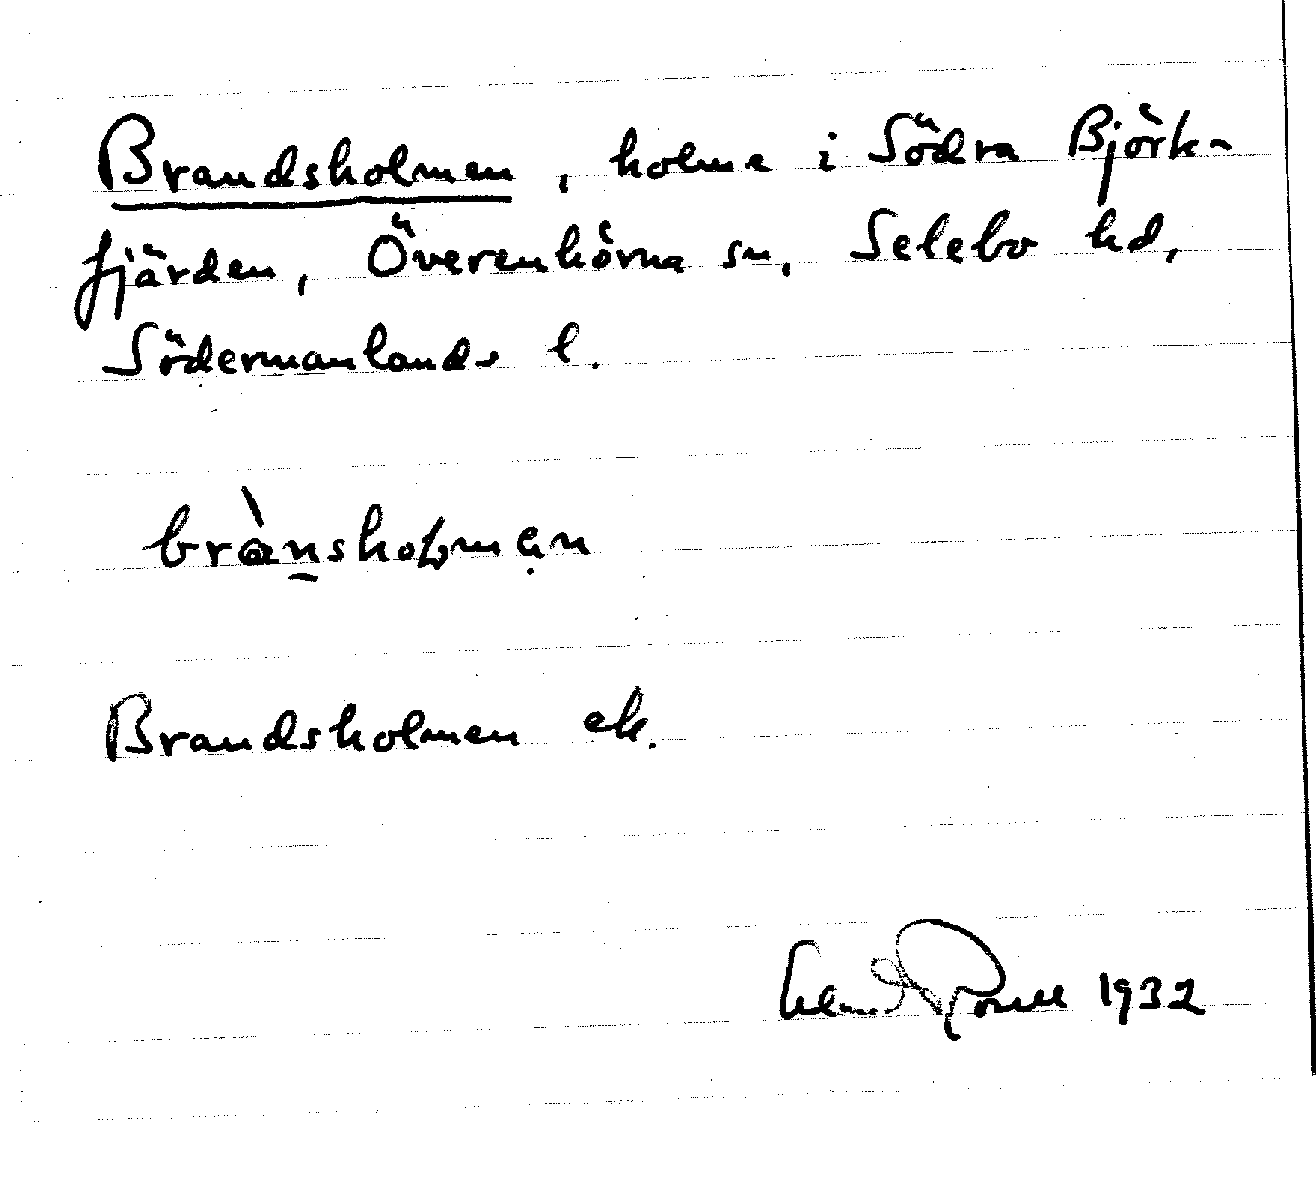 Brandsholmen, holme i Södra Björk-
fjärden, Överenhörna sn, Selebo hd,
Södermanlands l.
brànsholmạn
Brandsholmen ek.
1932